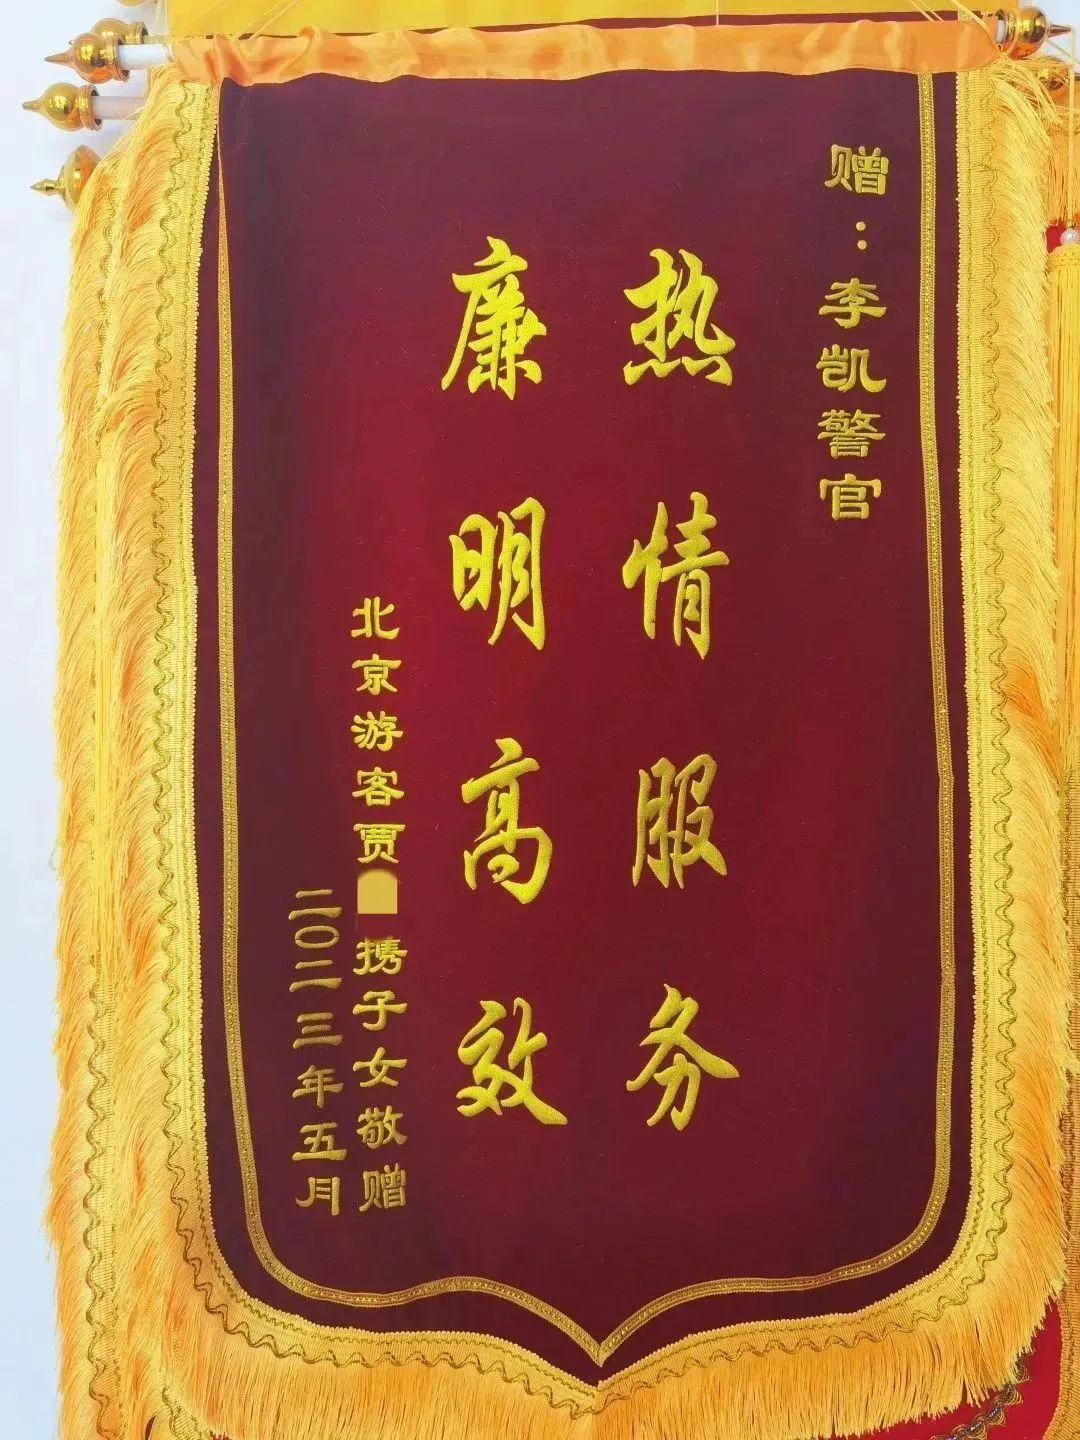 赠：李凯警官
热情服务
廉明高效
北京游客贾 携子女敬赠
二〇二三年五月